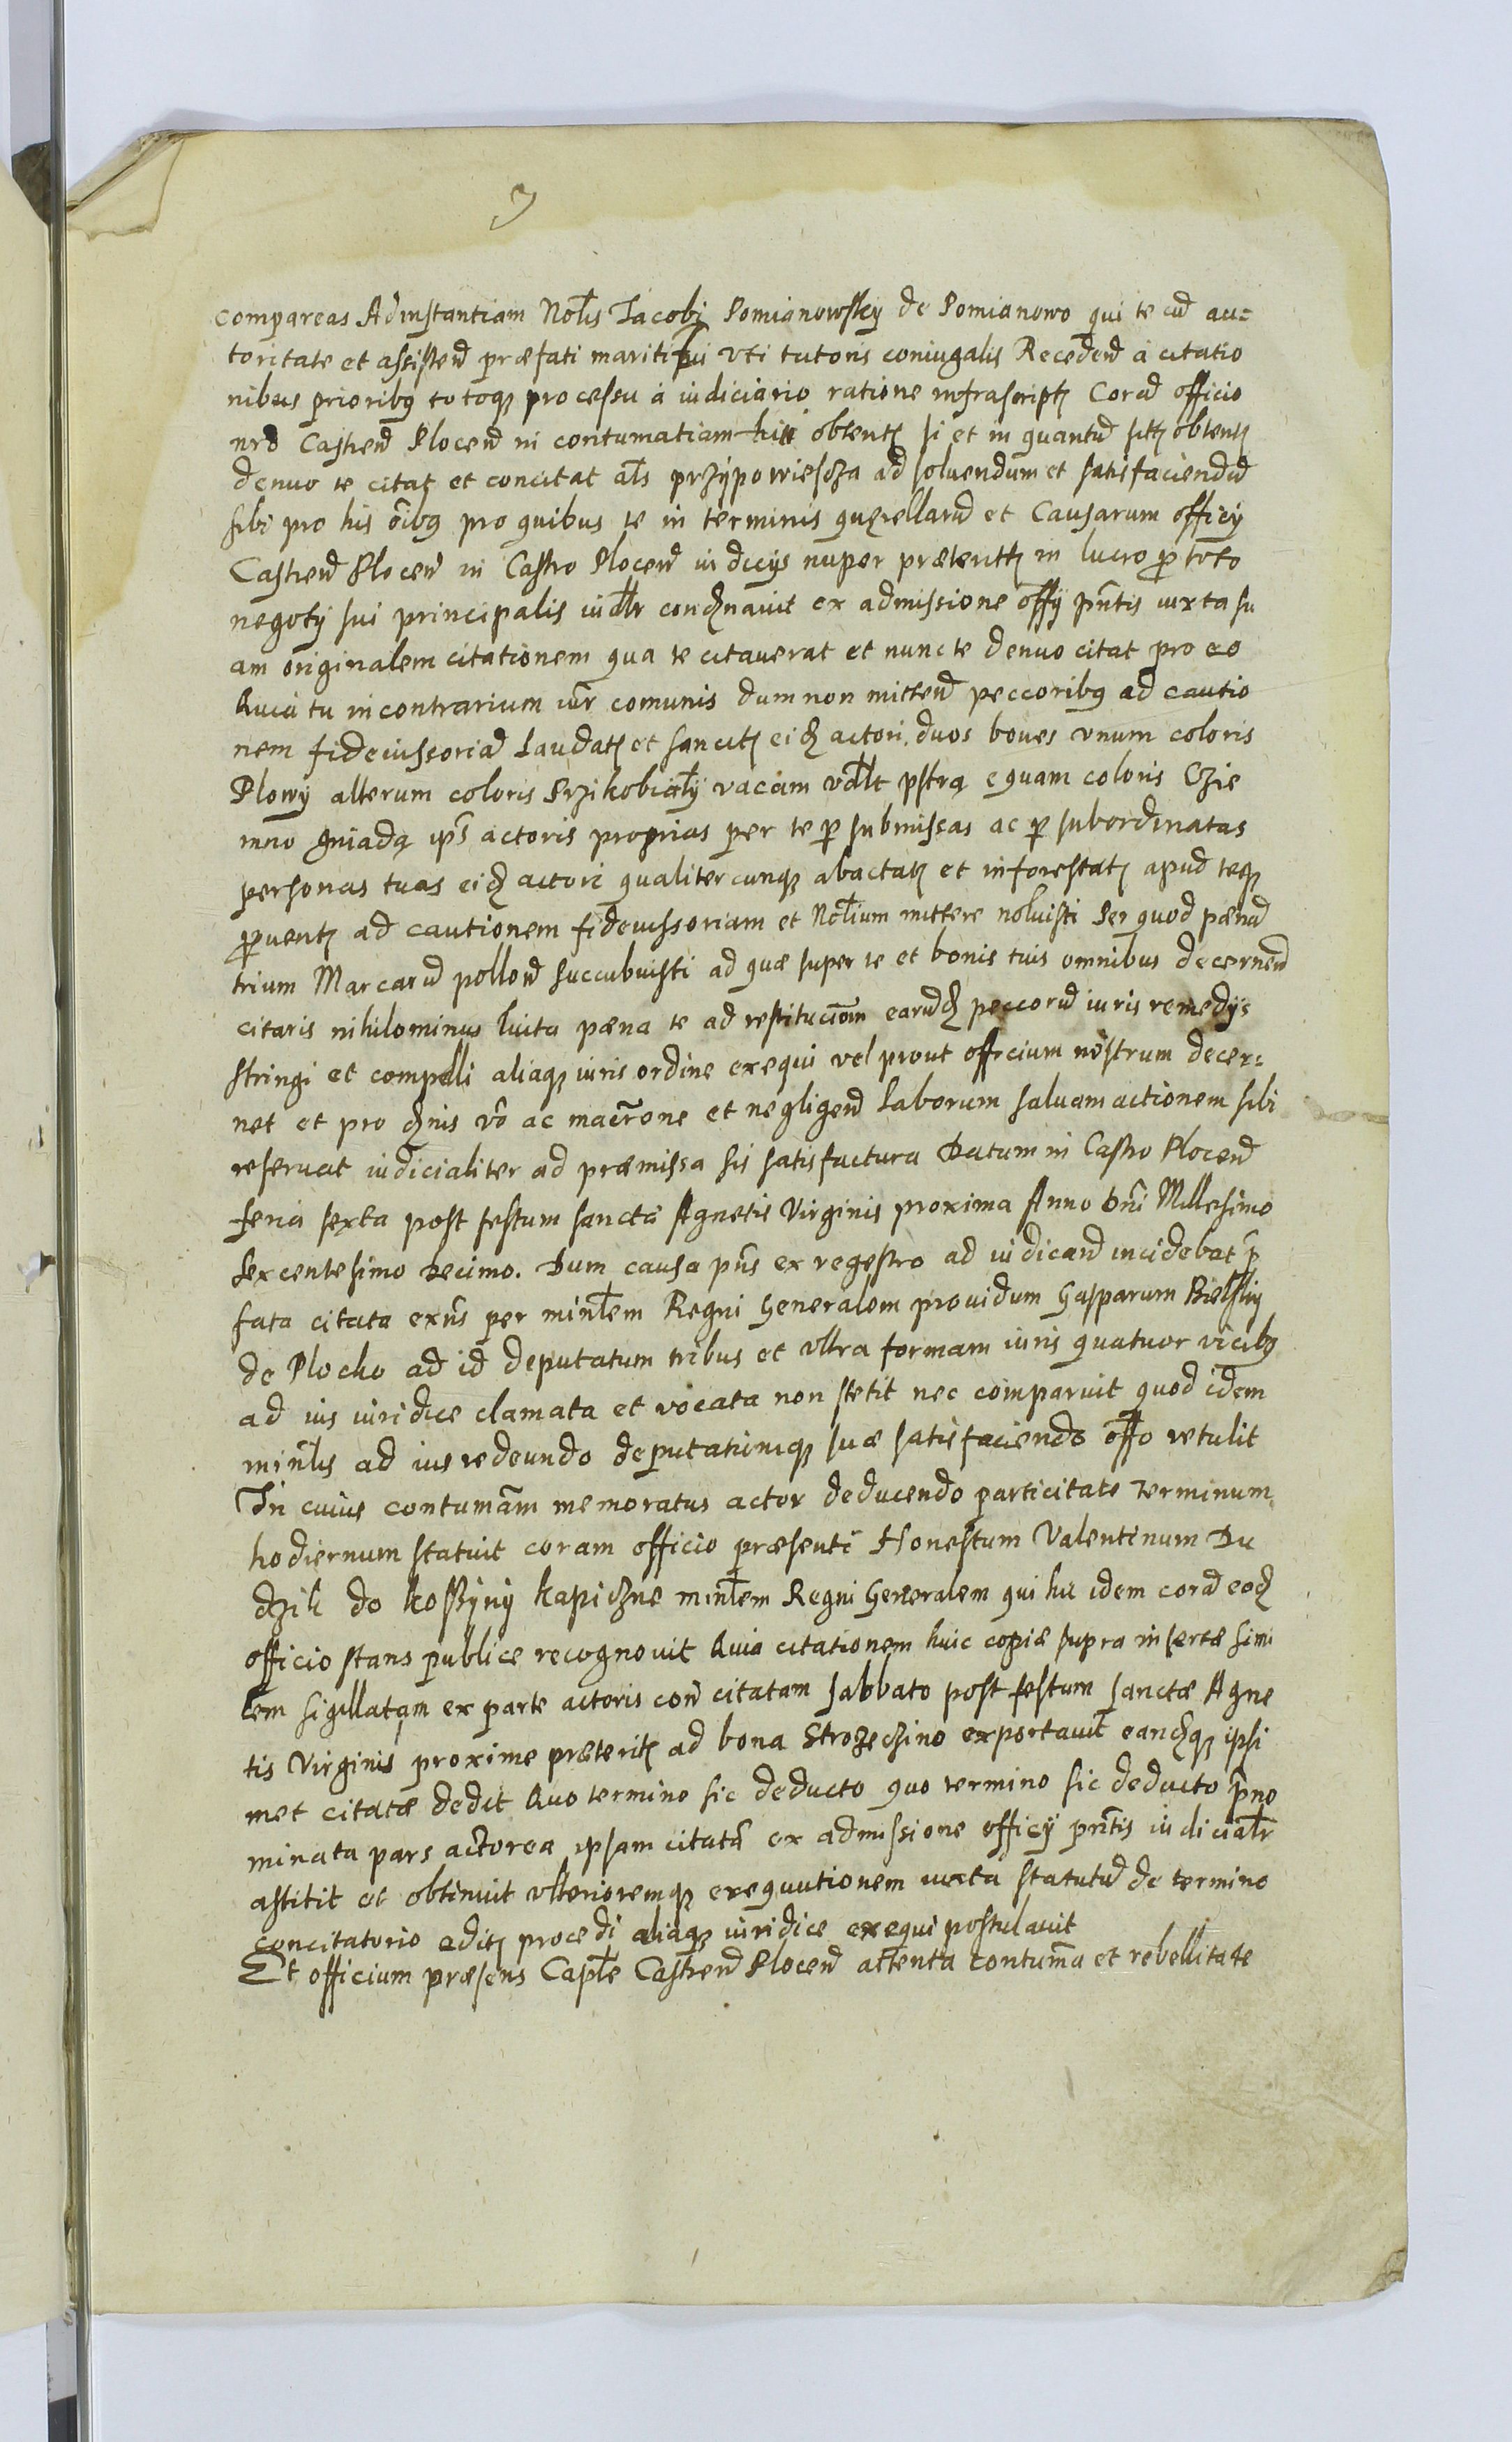 compareas Ad instantiam Nob̃lis Jacobi Pomianowsky de Pomianowo qui te cũ auc=
toritate et assisten̄ præfati mariti sui vti tutoris coniugalis Receden̄ à citatio
nibus prioribꝰ totoqꝫ processu à iudiciario ratione infrascript Corã officio
nr̃o Castren̄ Plocen̄ in contumatiam obtent si et in quantũ sit obtent
denuo te citat et concitat al̃s przÿpowiescza ad soluendum et satisfaciendũ
sibi pro his õibꝰ pro quibus te in terminis quęrellarũ et Causarum officÿ
Castren̄ Plocen̄ in Castro Plocen̄ iudicÿs nuper præterit in lucro ꝑ toto
negotÿ sui principalis iud̃lr condꝫnauit ex admissione offÿ pñtis iuxta su
am originalem citationem qua te citauerat et nunc te denuo citat pro eo
Quia tu in contrarium iur̃ comunis dum non mitten̄ peccoribꝰ ad cautio
nem fideiussoriã Laudat et sancit eidꝫ actori duos boues vnum coloris
Plowÿ alterum coloris Srzikobialÿ vacam vd̃lt pstrą equam coloris Czie
mno gniadą ip̃s actoris proprias per te ꝑ submissas ac ꝑ subordinatas
personas tuas eidꝫ actori qualitercunqꝫ abactat et inforestat apud teqꝫ
ꝓuent ad cautionem fideiussoriam et Nob̃lium mittere noluisti Per quod pænã
trium Marcarũ pollon̄ succubuisti ad quæ super te et bonis tuis omnibus decernen̄
citaris nihilominus luita pæna te ad restituciõm earũdꝫ peccorũ iuris remedÿs
stringi et compelli aliaqꝫ iuris ordine exequi vel prout officium nostrum decer=
net et pro dꝫnis võ ac macr̃one et negligen̄ Laborum saluam actionem sibi
reseruat iudicialiter ad præmissa sis satisfactura Datum in Castro Plocen̄
feria sexta post festum sanctæ Agnetis Virginis proxima Anno Dñi Millesimo
sexcentesimo Decimo. Dum causa pñs ex regestro ad iudican̄ incidebat ꝑ
fata citata exñs per minl̃em Regni Generalem prouidum Gasparum Bielsky
de Plocko ad id deputatum tribus et vltra formam iuris quatuor vicibꝰ
ad ius iuridice clamata et vocata non stetit nec comparuit quod idem
minl̃is ad ius redeundo deputationiqꝫ suæ satisfaciendo off̃o retulit
In cuius contumãm memoratus actor deducendo particitatæ terminum
hodiernum statuit coram officio præsenti Honestum Valentinum Du
dzik de Koszyny Kapiczne minl̃em Regni Generalem qui hic idem corã eodꝫ
officio stans publice recognouit Quia citationem huic copiæ supra insertæ simi
lem sigillatam ex parte actoris con̄ citatam sabbato post festum sanctæ Agne
tis Virginis proxime præterit ad bona Strozeczino exportauit eandꝫqꝫ ipsi
met citatæ dedit Quo termino sic deducto quo termino sic deducto p̃no
minata pars actorea ipsam citatã ex admissione officÿ pñtis iudicial̃r
astitit et obtinuit vlterioremqꝫ exequutionem iuxta statutũ de termino
concitatorio edit procedi aliaqꝫ iuridice exequi postulauit
Et officium præsens Capl̃e Castren̄ Plocen̄ attenta contumã et rebellitate